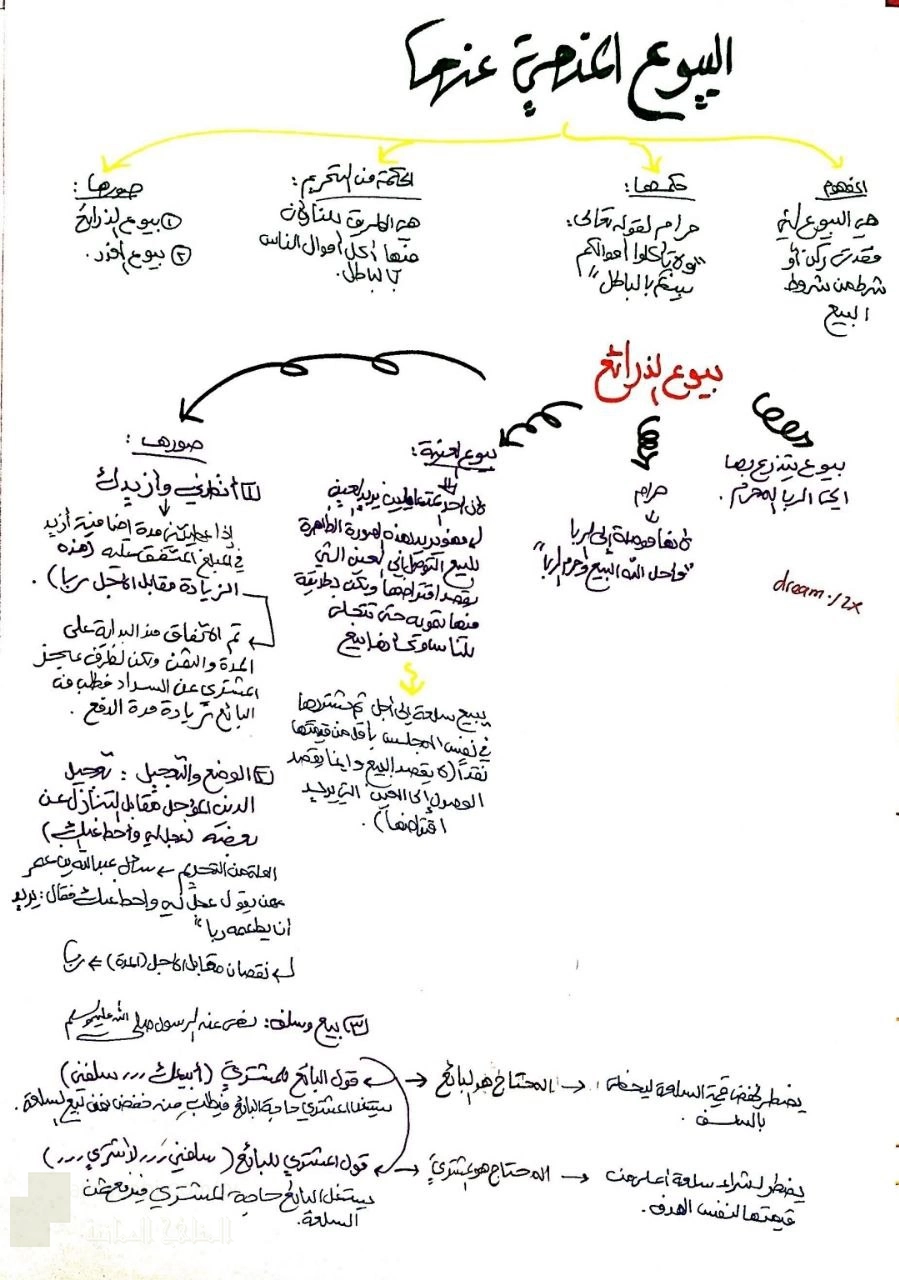 البيوع المنهي عنها
المفهوم
هي البيوع التي
فقدت ركن أو
شرط من شروط
البيع
حكمها:
حرام لقوله تعالى:
"ولا تأكلوا أموالكم
بينكم بالباطل"
الحكمة من التحريم:
هي الطريق للناس
منها أكل أموال الناس
بالباطل.
صورها:
① بيوع الذرائع
② بيوع أخرى.
بيوع الذرائع
بيوع يتذرع بها
إلى الربا المحرم.
حرام
لأنها موصلة إلى الربا
"وأحل الله البيع وحرم الربا"
dream.12x
بيوع العينة:
لأن أحد المتعاملين يريد العينة
فهو يريد بهذه الصورة الظاهرة
للبيع التوصل إلى العين التي
يقصد اقتراضها ولكن بطريقة
منها تمويه حتى تتجلى
للناس وكأنها بيع
يبيع سلعة إلى أجل ثم يشتريها
في نفس المجلس بأقل من قيمتها
نقداً (لا يقصد البيع وإنما يقصد
الوصول إلى العين التي يريد
اقتراضها).
صورها:
١ أنظرني وأزيدك
إذا أعطيتني مدة إضافية أزيد
في المبلغ المتفق عليه (هذه
الزيادة مقابل الأجل ربا).
تم الاتفاق منذ البداية على
المدة والثمن ولكن لظرف ما عجز
المشتري عن السداد فطلب من
البائع زيادة مدة الدفع.
٢ الوضع والتعجيل: تعجيل
الدين المؤجل مقابل التنازل عن
بعضه (عجل لي وأحط عنك)
العلة من التحريم ← سئل عبدالله بن عمر
عمن يقول عجل لي وأحط عنك فقال: يريد
أن يطعمه ربا"
نقصان مقابل الأجل (المدة) ← ربا
٣ بيع وسلف: نهى عنه الرسول صلى الله عليه وسلم
قول البائع للمشتري (أبيعك ... سلفني) → المحتاج هو البائع → يضطر لخفض قيمة السلعة ليحظى
يستغل المشتري حاجة البائع فيطلب منه خفض ثمن بيع السلعة.
بالسلف.
قول المشتري للبائع (سلفني ... لأشتري ...) → المحتاج هو المشتري → يضطر لشراء سلعة أعلى من
يستغل البائع حاجة المشتري فيرفع ثمن
قيمتها لنفس الهدف.
السلعة.